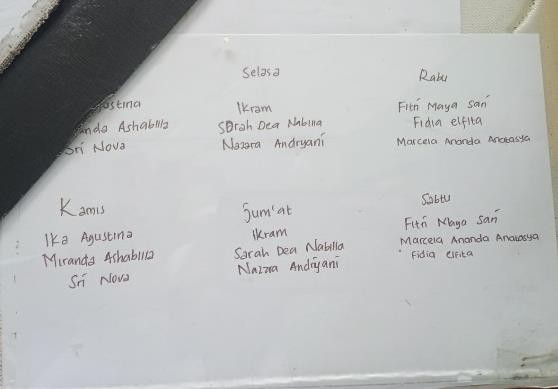 Selasa
Ikram
Sarah Dea Nabilla
Nazara Andryani
Rabu
Fitri Maya Sari
Fidia elfita
Marcela Ananda Anatasya
Ashabilla
Sri Nova
Kamis
Ika Agustina
Miranda Ashabilla
Sri Nova
Jum'at
Ikram
Sarah Dea Nabilla
Nazra Andriyani
Sabtu
Fitri Maya Sari
Marcela Ananda Anatasya
Fidia elfita